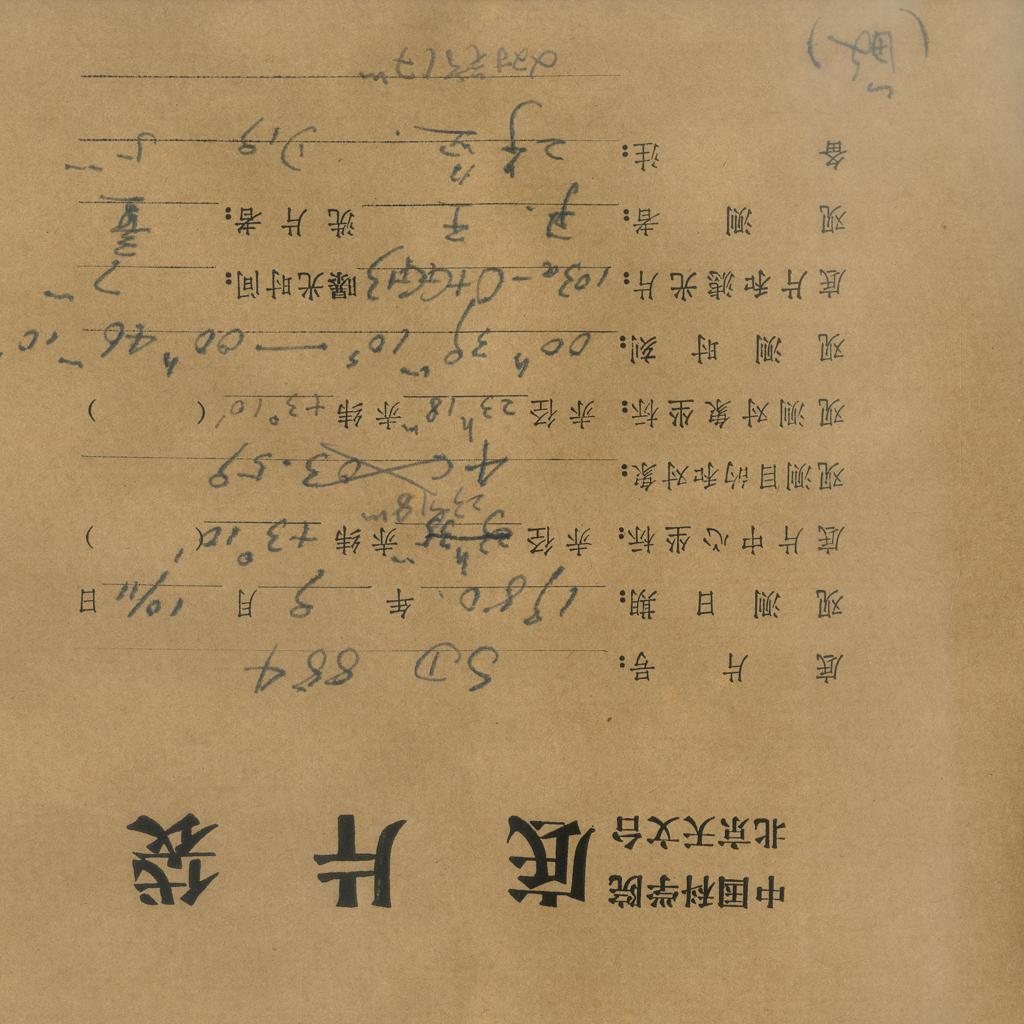 中国科学院
北京天文台
底片袋
底片号: SD 884
观测日期: 1980年9月10/11日
底片中心坐标: 赤径 23ʰ18ᵐ 赤纬 +3°10′( )
观测目的和对象: 4C 03.59
观测对象坐标: 赤径 23ʰ18ᵐ 赤纬 +3°10′( )
观测时刻: 00ʰ39ᵐ10ˢ — 00ʰ46ᵐ10ˢ
底片和滤光片: 103a-O+GG13 曝光时间: 7ᵐ
观测者: 洗片者:
备注: 2号 D19 5ᵐ
17ᵐ